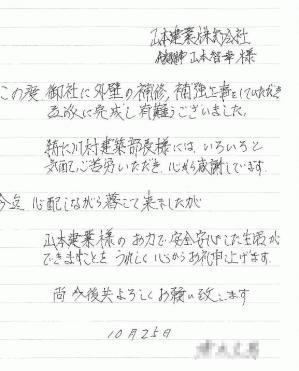 山本建業株式会社
山本智幸様
この度 御社に外壁の補修、補強工事をしていただき
立派に完成し有難うございました。
特に川村建築部長様には、いろいろと
気配りご苦労いただき、心から感謝しています
今迄 心配しながら暮して来ましたが
山本建業様のお力で安全安心した生活が
できますことを うれしく 心からお礼申上げます。
尚 今後共よろしくお願い致します
10月25日